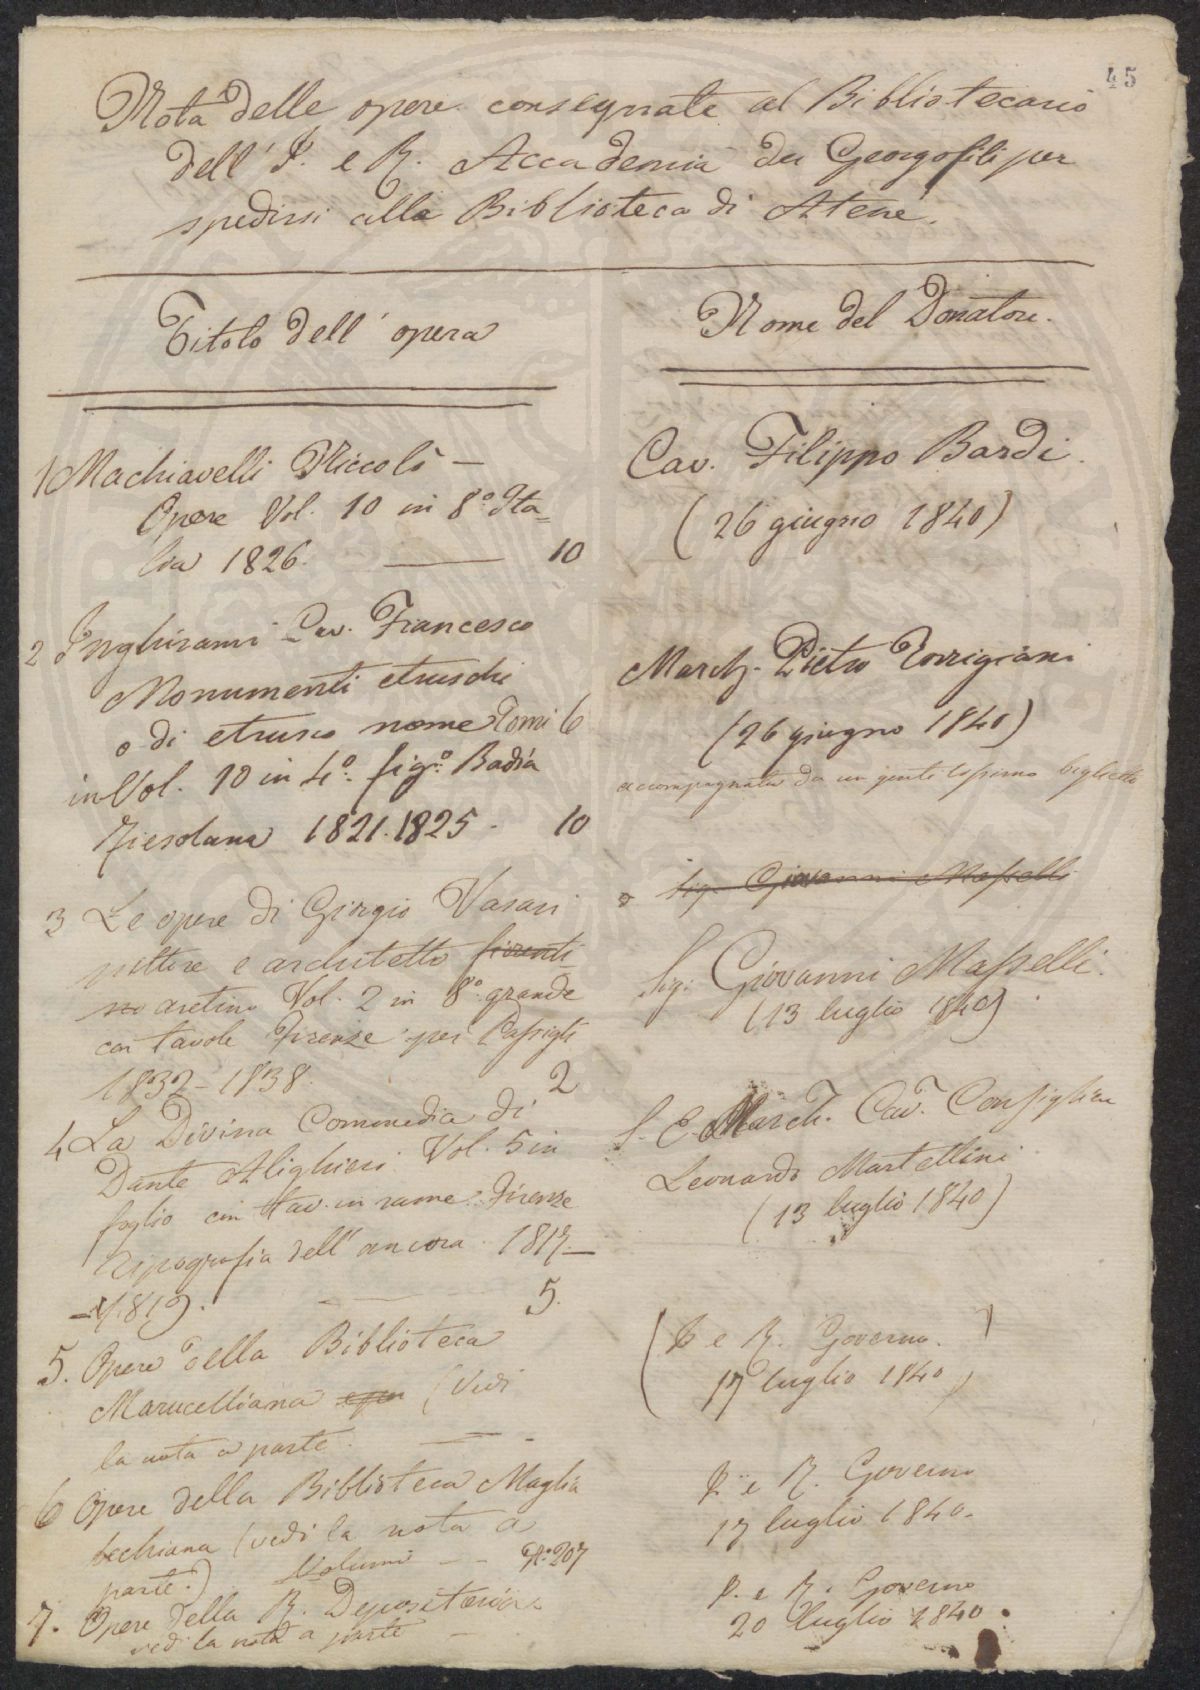 45
Nota delle opere consegnate al Bibliotecario
dell' I. e R. Accademia dei Georgofili per
spedirsi alla Biblioteca di Atene.
Titolo dell' opera
Nome del Donatore.
1 Machiavelli Niccolò —
Opere Vol. 10 in 8.º Ita=
lia 1826. — 10
Cav. Filippo Bardi.
(26 giugno 1840)
2 Inghirami Cav. Francesco
Monumenti etruschi
o di etrusco nome Tomi 6
in Vol. 10 in 4.º fig.º Badia
Fiesolana 1821.1825. 10
March. Pietro Torrigiani
(26 giugno 1840)
accompagnata da un gentilissimo biglietto
3 Le opere di Giorgio Vasari
pittore e architetto fiorenti
no aretino Vol. 2 in 8.º grande
con tavole Firenze per Passigli
1832-1838. 2
Sig. Giovanni Masselli
Sig. Giovanni Masselli.
(13 luglio 1840)
4 La Divina Commedia di
Dante Alighieri Vol. 5 in
foglio con tav. in rame. Firenze
Tipografia dell' ancora 1817—
—1819. 5.
S. E. March. Cav. Consigliere
Leonardo Martellini
(13 luglio 1840)
5. Opere della Biblioteca
Marucelliana (Vedi
la nota a parte. —
(I. e R. Governo.)
(17 luglio 1840)
6 Opere della Biblioteca Maglia
bechiana (vedi la nota a
parte.) Volumi — — N.º 207
I. e R. Governo
17 luglio 1840.
7. Opere della R. Depositeria.
vedi la nota a parte —
I. e R. Governo
20 luglio 1840.